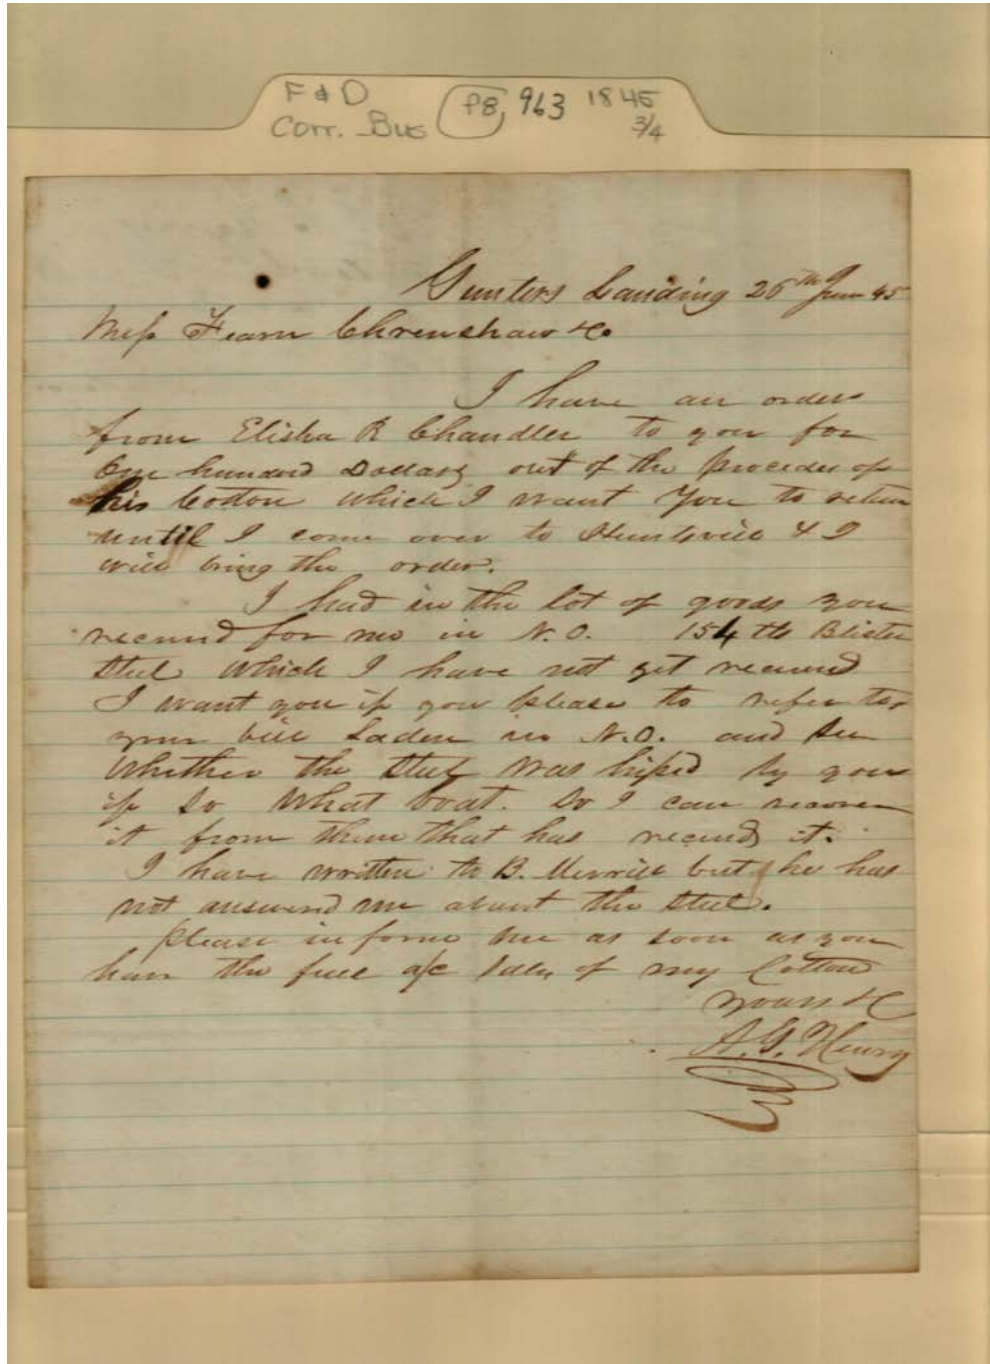 F & D
Corr. Bus
P8, 963 1845
3/4
Gunters Landing 26th June 45
Mess Fearn Chrenshaw &c
I have an order
from Elisha R Chandler to you for
One hundard Dollars out of the procedes of
his Cotton which I want You to
until I come over to Huntsvill & I
will bring the order.
I had in the lot of goods you
recevd for me in N.O. 154 lb Blister
Steel which I have not yet recevd
I want you if you please to refer to
your bill Laden in N.O. and See
Whether the Steel was Ship'd by you
if So What boat. So I can recover
it from them that has recevd it.
I have written to B. Merrill but he has
not answered me about the Steel.
Please inform me as soon as you
have the full a/c Sales of my Cotton
Yours &c
A. G. Henry